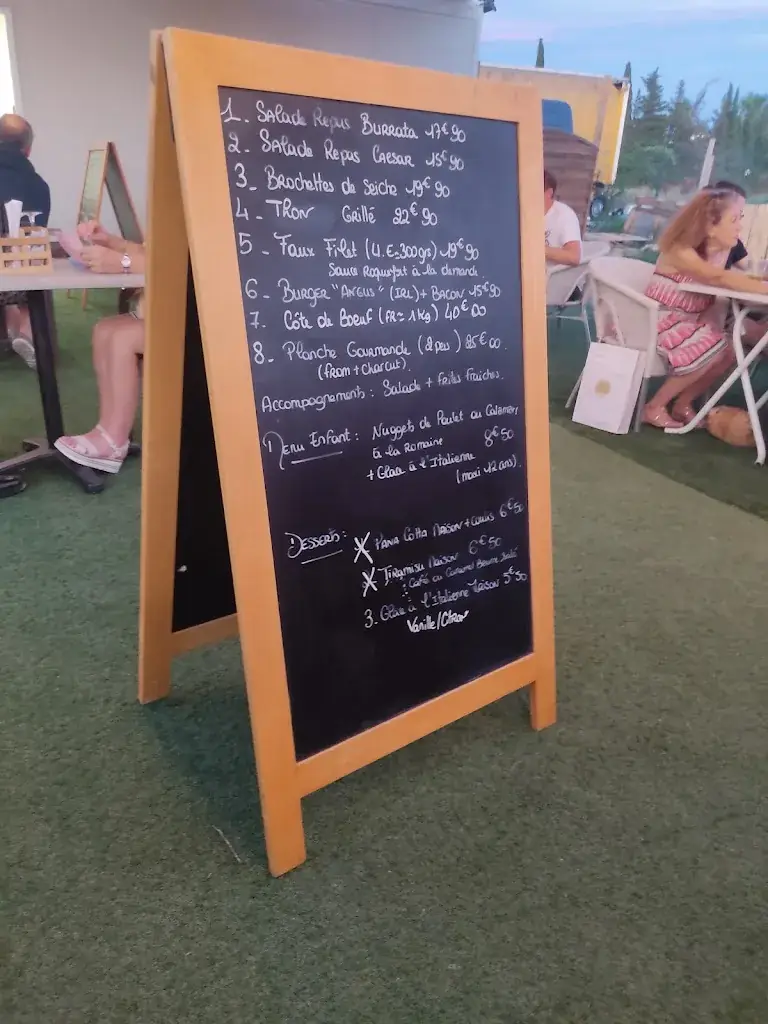 1. Salade Repas Burrata 17€90
2. Salade Repas Caesar 15€90
3_ Brochettes de seiche 19€90
4_ Thon Grillé 22€90
5_ Faux Filet (U.E-300grs) 19€90
Sauce Roquefort à la demande
6_ Burger "Angus" (IRL)+ Bacon 15€90
7. Côte de Boeuf (FR≈1kg) 40€00
8_ Planche Gourmande (2pers) 25€00
(from+charcut).
Accompagnements: Salade + Frites Fraiches.
Menu Enfant: Nuggets de Poulet ou Calamars
à la Romaine 8€50
+ Glace à l'Italienne
(maxi 12 ans).
Desserts: Pana Cotta Maison + Coulis 6€50
Tiramisu Maison 6€50
: Café ou Caramel Beurre Salé
3. Glace à l'Italienne Maison 5€50
Vanille/Citron